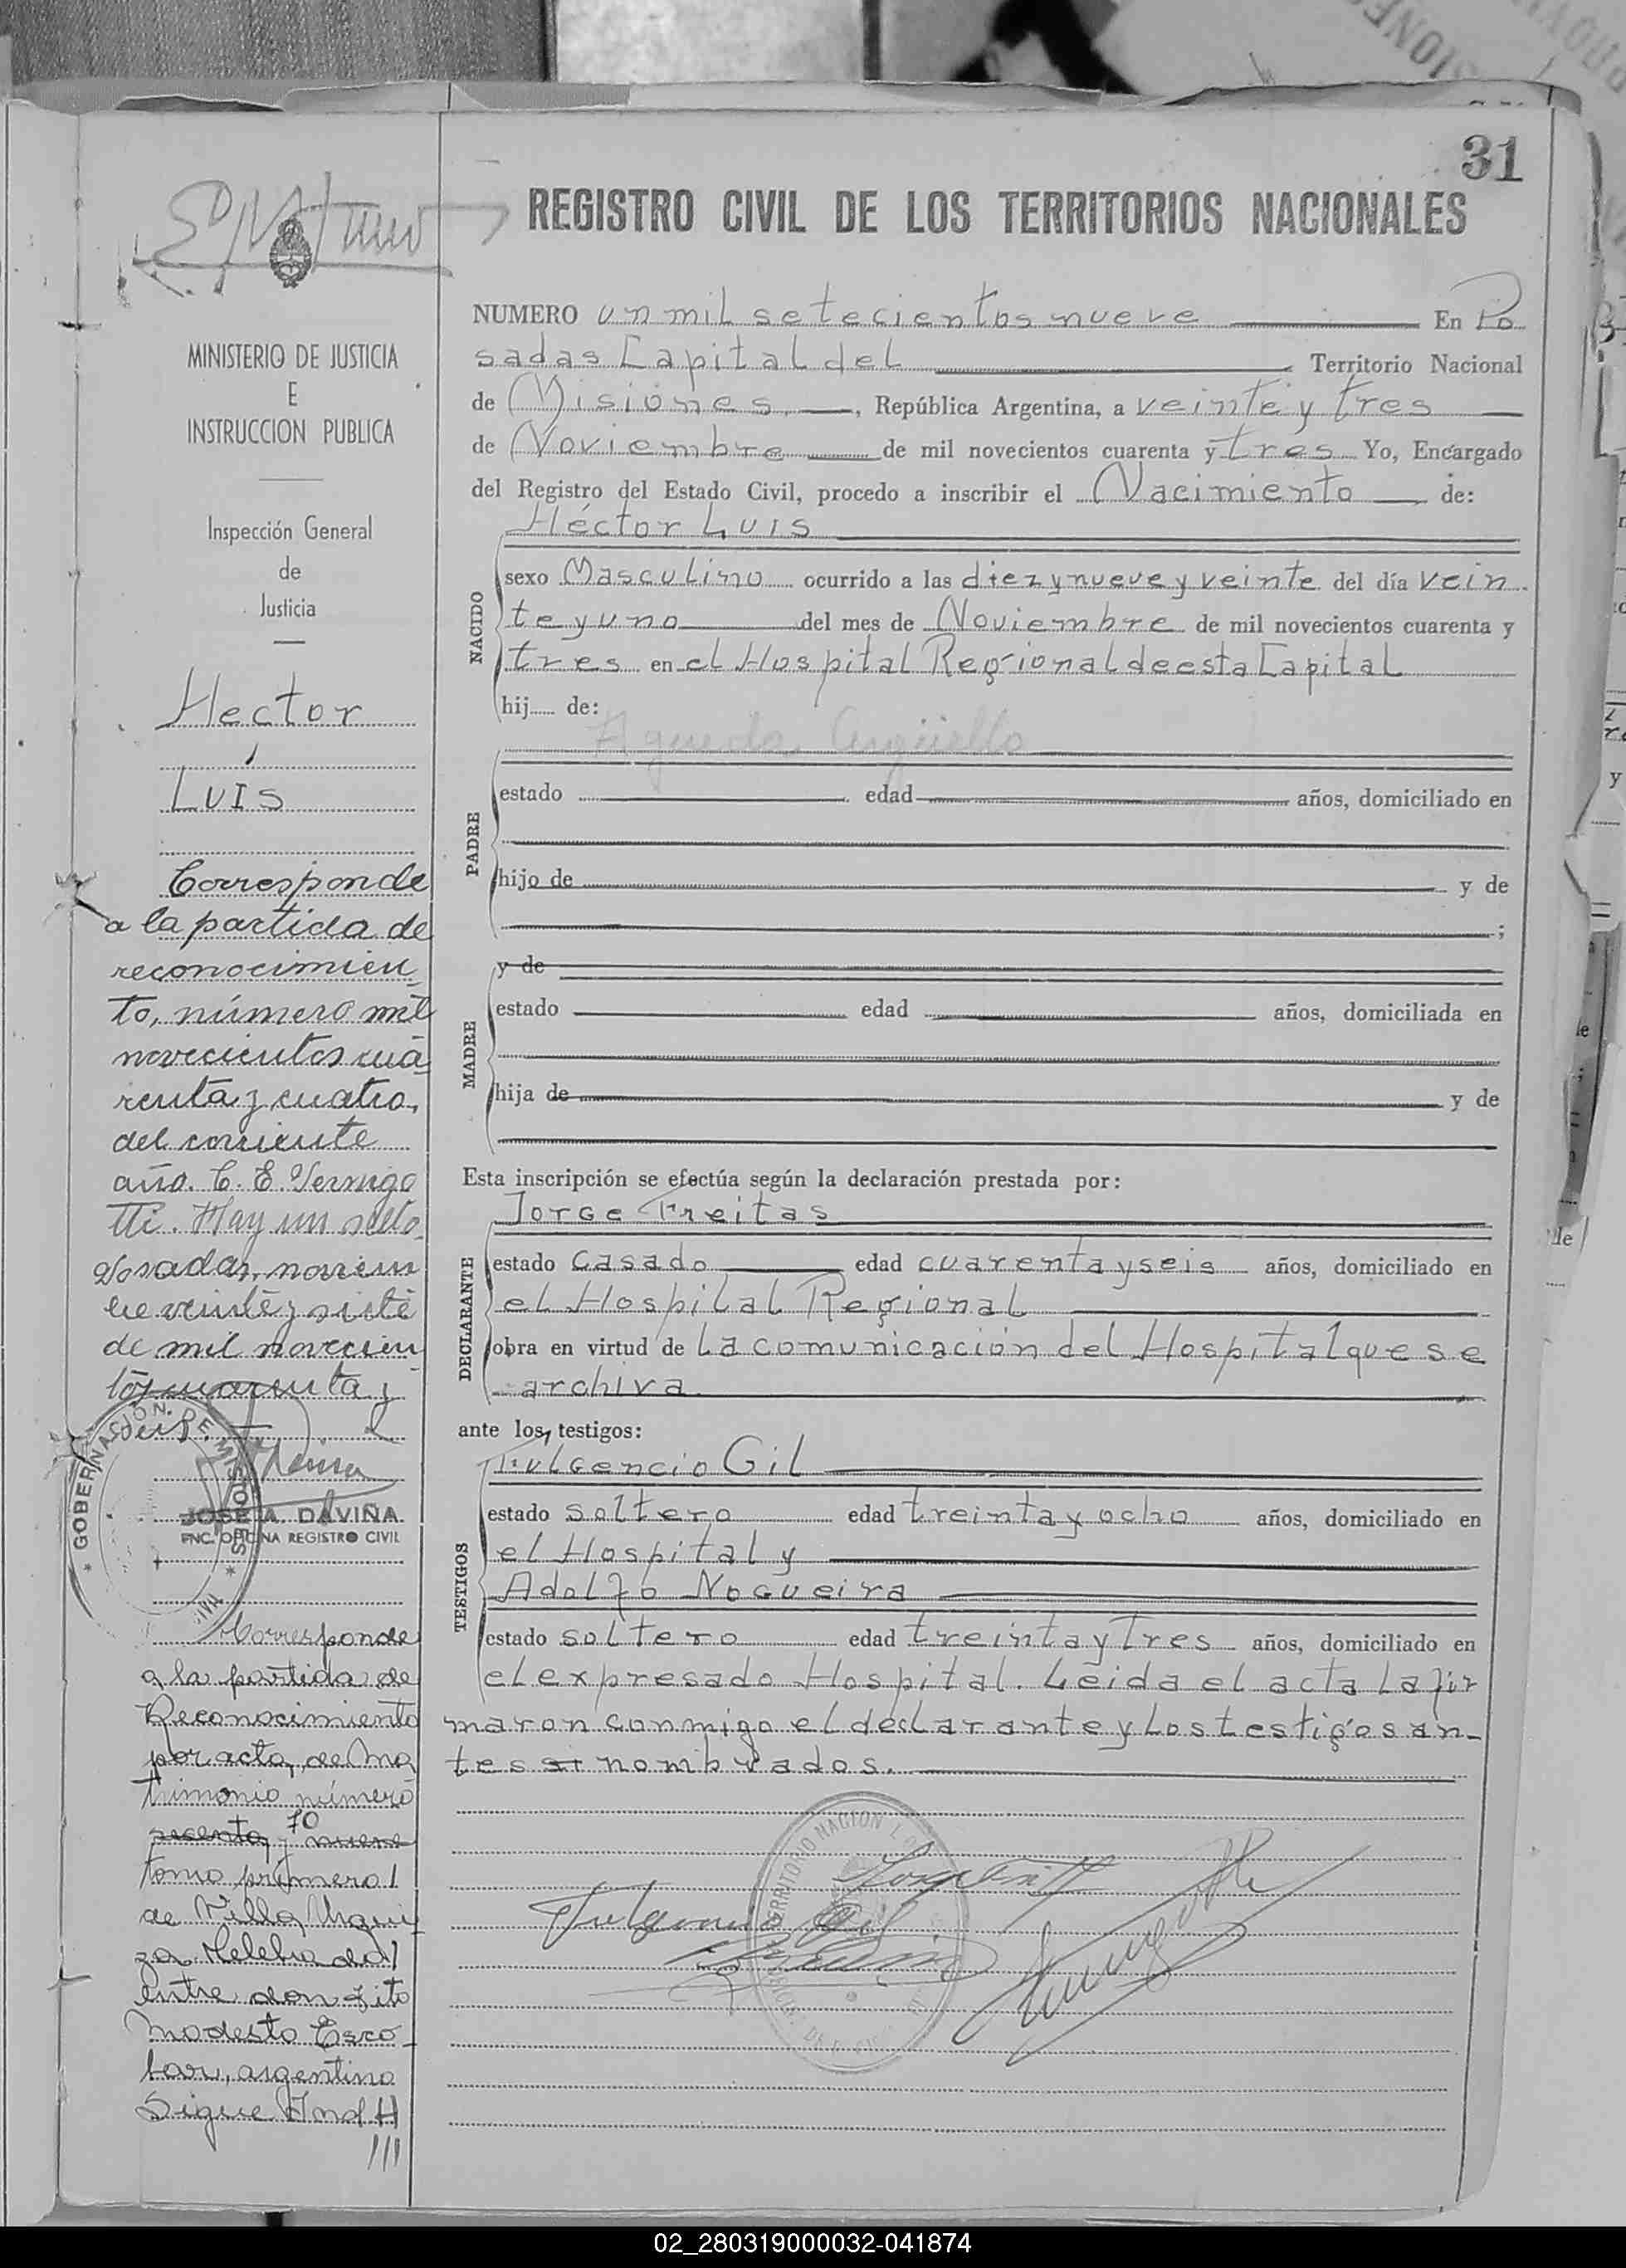 31
REGISTRO CIVIL DE LOS TERRITORIOS NACIONALES
MINISTERIO DE JUSTICIA
E
INSTRUCCION PUBLICA
Inspección General
de
Justicia
Hector
Luis
Corresponde
a la partida de
reconocimien
to, número mil
novecientos cua
renta y cuatro,
del corriente
año. C. E. Vernigo
tti. Hay un sello.
Posadas, noviem
bre veinte y siete
de mil novecien
tos cuarenta y
seis.
GOBERNACIÓN DE MISIONES
JOSE A. DAVIÑA
ENC. OFICINA REGISTRO CIVIL
Corresponde
a la partida de
Reconocimiento
por acta de Ma
trimonio número
70
sesenta y nueve
tomo primero
de Villa Urqui
za Celebrado
entre don Tito
Modesto Esco
bar, argentino
Sigue Ind H
NUMERO un mil setecientos nueve En Po
sadas Capital del Territorio Nacional
de Misiones, República Argentina, a veinte y tres
de Noviembre de mil novecientos cuarenta y tres Yo, Encargado
del Registro del Estado Civil, procedo a inscribir el Nacimiento de:
Héctor Luis
NACIDO
sexo Masculino ocurrido a las diez y nueve y veinte del día vein
te y uno del mes de Noviembre de mil novecientos cuarenta y
tres en el Hospital Regional de esta Capital
hij de:
Agueda Argüello
PADRE
estado edad años, domiciliado en
hijo de y de
;
MADRE
y de
estado edad años, domiciliada en
hija de y de
Esta inscripción se efectúa según la declaración prestada por:
Jorge Freitas
DECLARANTE
estado casado edad cuarenta y seis años, domiciliado en
el Hospital Regional
obra en virtud de la comunicación del Hospital que se
archiva.
ante los testigos:
Fulgencio Gil
TESTIGOS
estado soltero edad treinta y ocho años, domiciliado en
el Hospital y
Adolfo Nogueira
estado soltero edad treinta y tres años, domiciliado en
el expresado Hospital. Leida el acta la fir
maron conmigo el declarante y los testigos an-
tes nombrados.
Fulgencio Gil
02_280319000032-041874